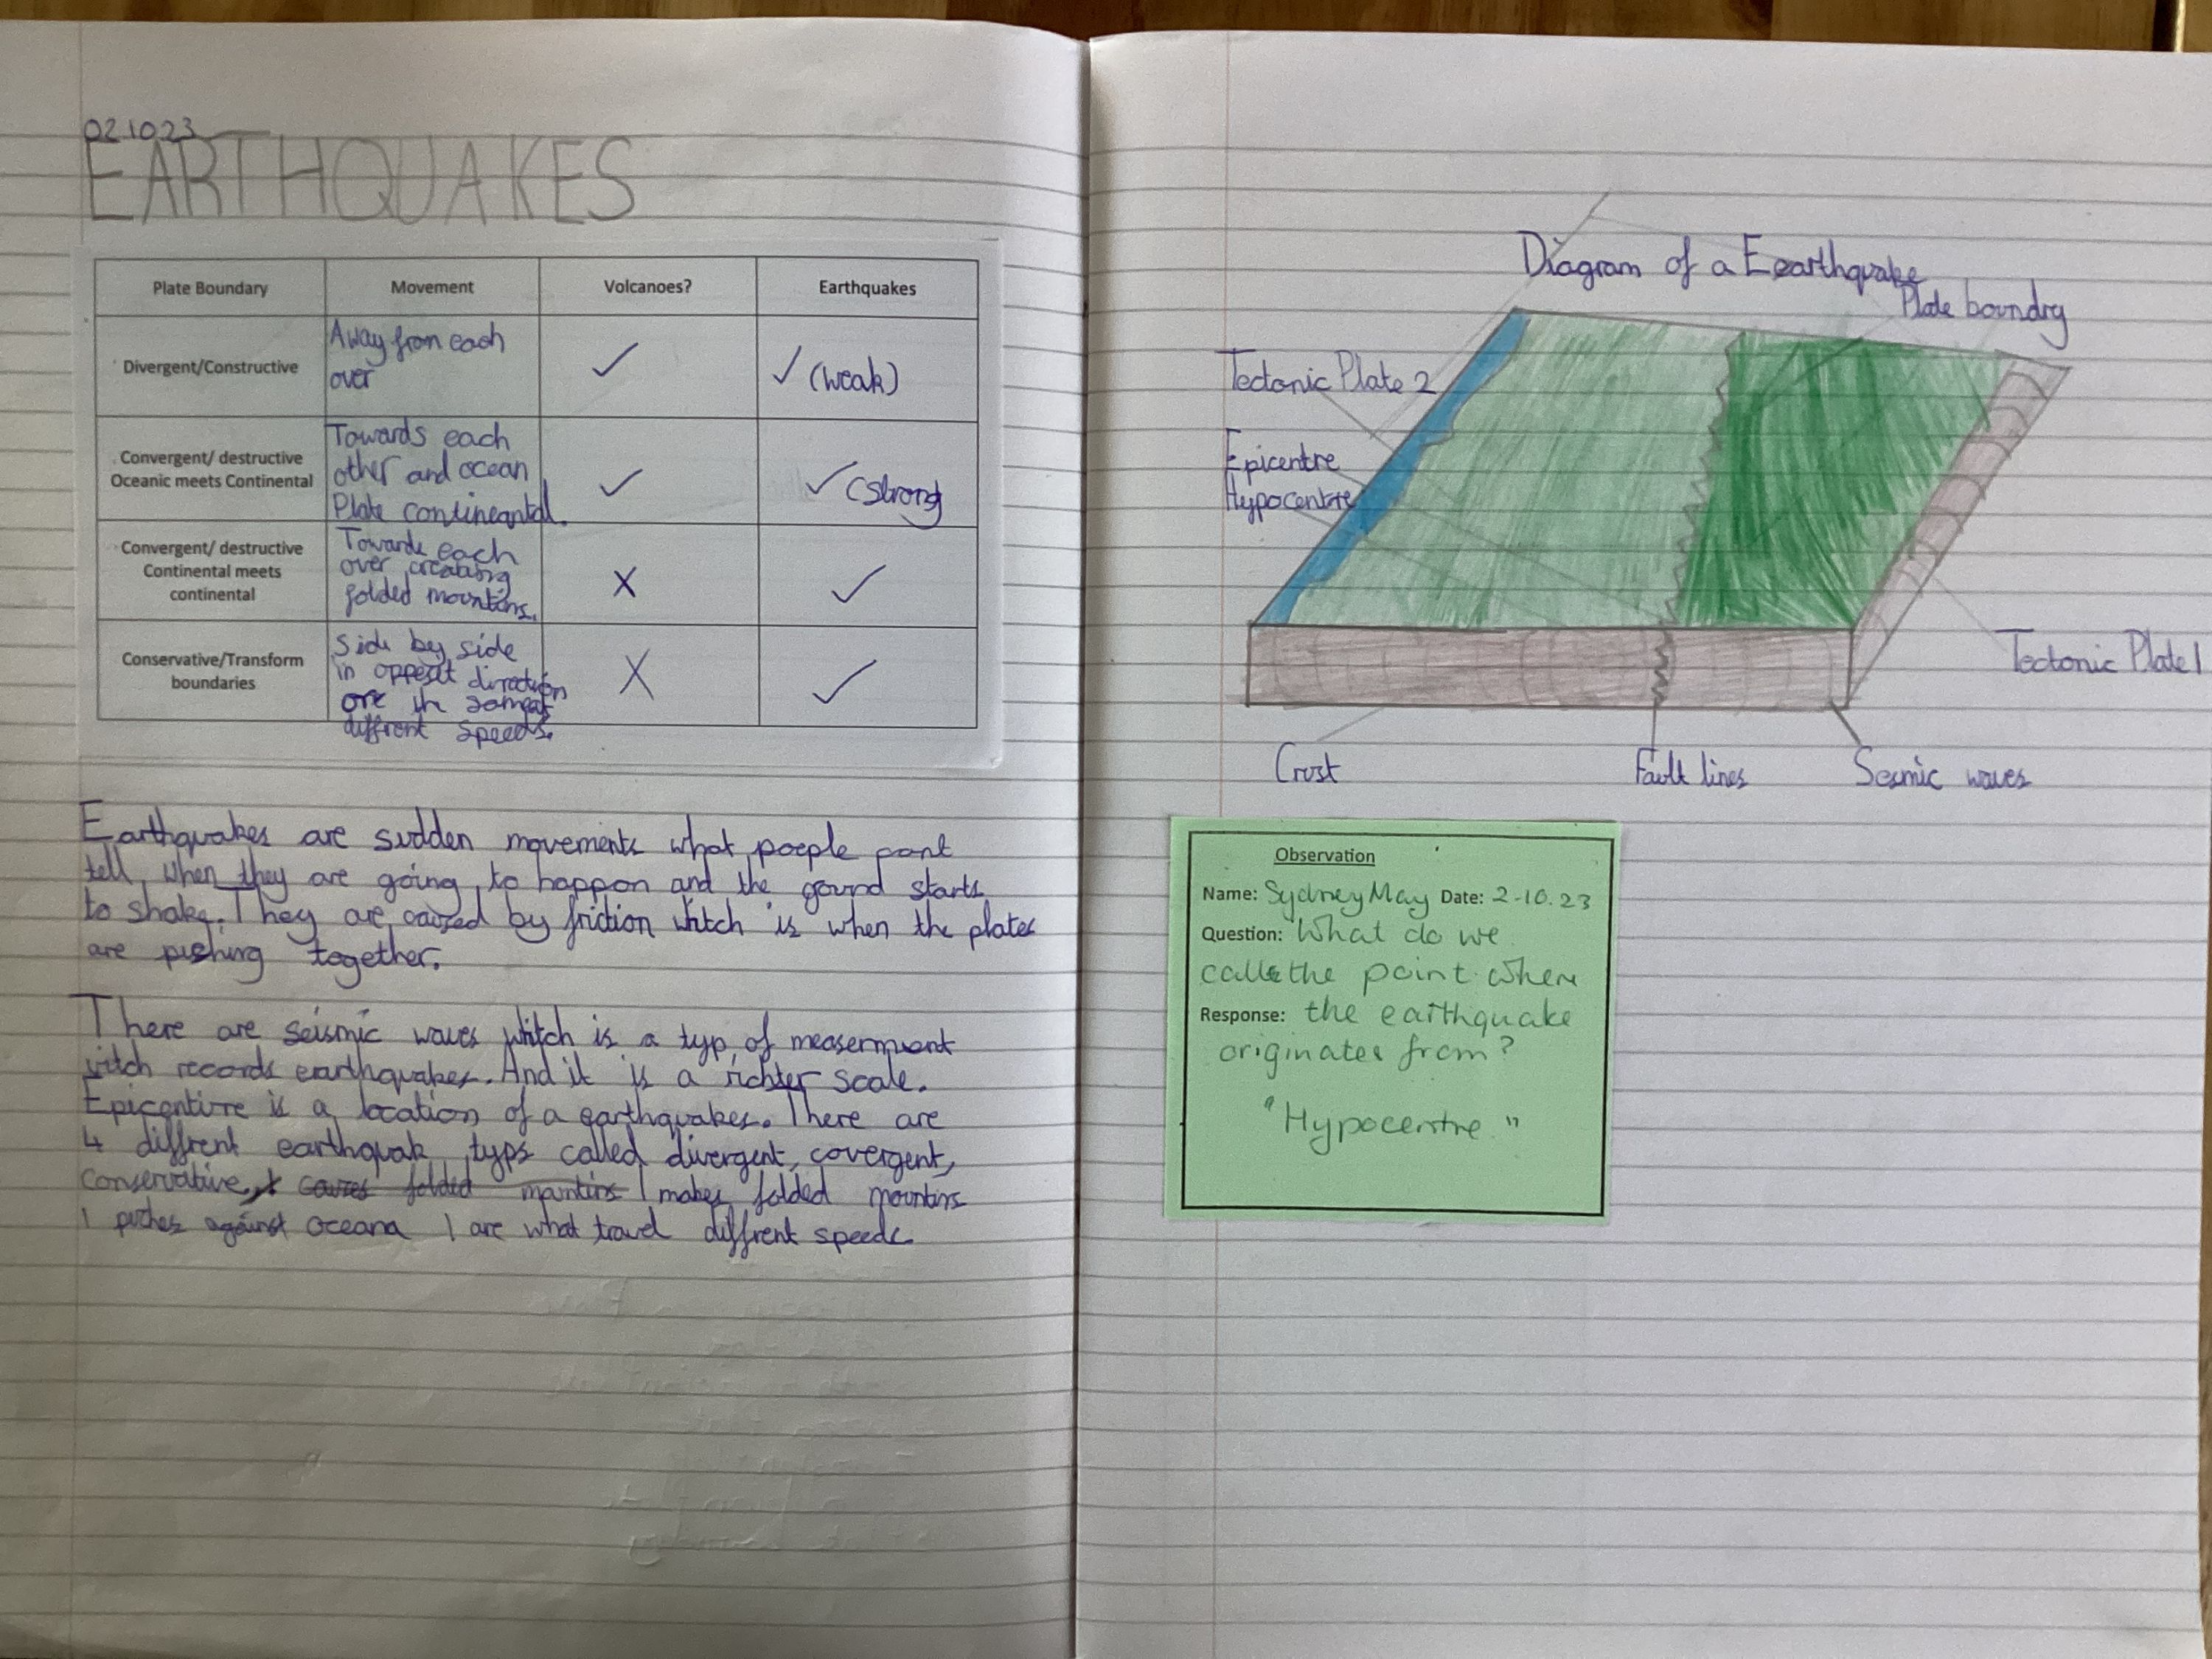 02.10.23
EARTHQUAKES
Plate Boundary Movement Volcanoes? Earthquakes
Divergent/Constructive
Away from each
over
✓
✓ (weak)
Convergent/ destructive
Oceanic meets Continental
Towards each
other and ocean
Plate contineantal.
✓
✓ (strong
Convergent/ destructive
Continental meets
continental
Towards each
over creating
folded mountins.
X
✓
Conservative/Transform
boundaries
Side by side
in oppesit direction
ore in the
diffrent speeds.
X
✓
Earthquakes are sudden movements what poeple cant
tell when they are going to happon and the ground starts
to shake. They are caused by friction witch is when the plates
are pushing together.
There are seismic waves witch is a typ of measerment
witch records earthquakes. And it is a richter scale.
Epicentire is a location of a earthquakes. There are
4 diffrent earthquak typs called divergent, covergent,
conservative, causes folded mountins 1 makes folded mountins
1 pushes against oceana 1 are what travel diffrent speeds
Diagram of a Eearthquake
Plate boundry
Tectonic Plate 2
Epicentre
Hypocentre
Tectonic Plate 1
Crust
Fault lines
Sesmic waves
Observation
Name: Sydney May Date: 2-10.23
Question: What do we
call the point where
Response: the earthquake
originates from?
"Hypocentre"